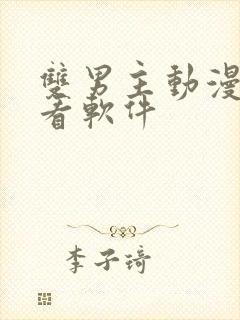 雙男主動漫
看軟件
李子琦